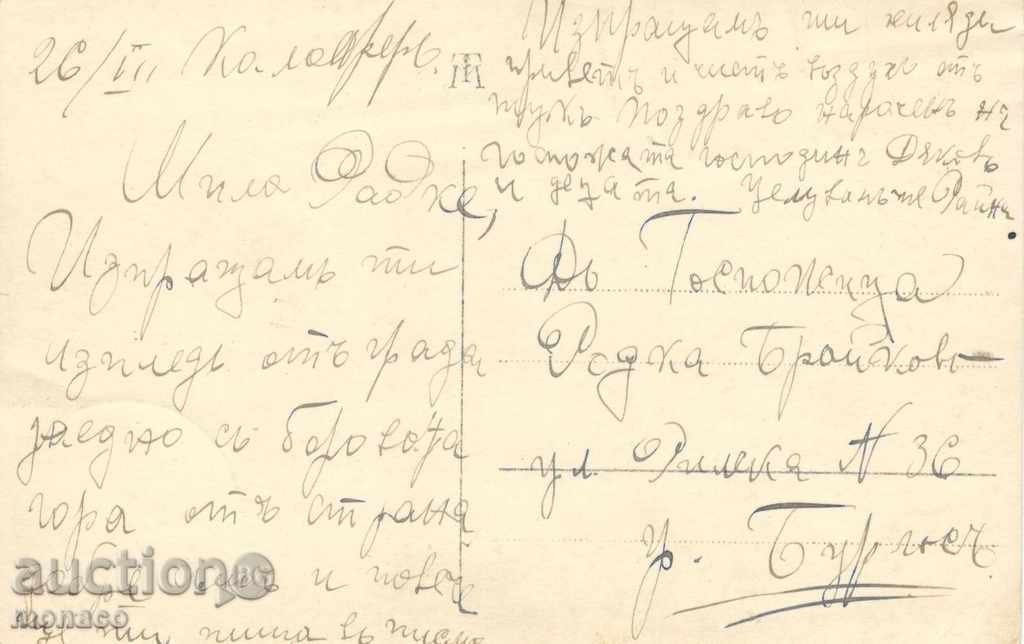 26/III Калоферъ.
Мила Радке,
Изпращамъ ти
изгледъ отъ града
заедно съ боровата
гора отъ страна
и повече
ще ти пиша въ писмо
Изпращамъ ти хиляди
приветъ и чистъ въздухъ отъ
тукъ. Поздравъ нарочен на
госпожата господинъ Дяковъ
и децата. Целувамъ те Райна
Госпожица
Радка Бройкова
ул. Рилска N 36
гр. Бургасъ
auctionBG
monaco